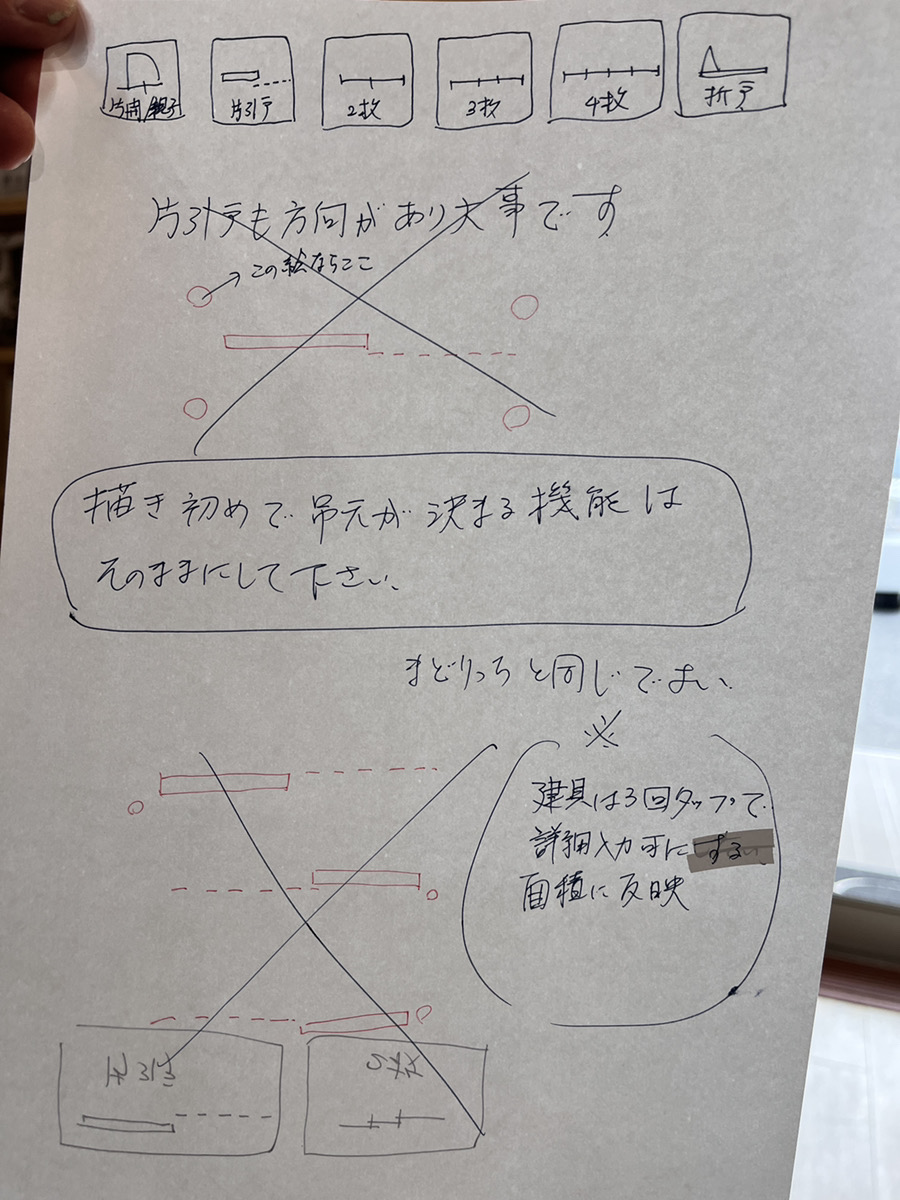 片開/親子
片引戸
2枚
3枚
4枚
折戸
片引戸も方向があり大事です
この絵ならここ
描き初めで吊元が決まる機能は
そのままにして下さい、
まどりっちと同じでよい、
※
建具は3回タップで
詳細入力可にする
面積に反映
片引
2枚